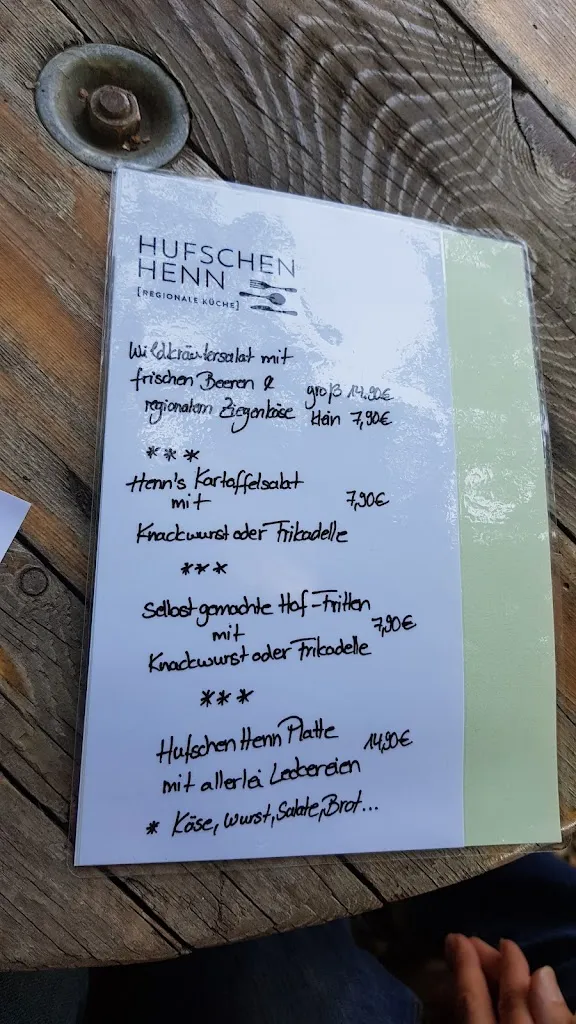 HUFSCHEN
HENN
[REGIONALE KÜCHE]
Wildkräutersalat mit
frischen Beeren &
groß 14,90€
regionalem Ziegenkäse
klein 7,90€
***
Henn's Kartoffelsalat
mit
7,90€
Knackwurst oder Frikadelle
***
Selbstgemachte Hof-Fritten
mit
7,90€
Knackwurst oder Frikadelle
***
Hufschen Henn Platte
14,90€
mit allerlei Leckereien
* Käse, Wurst, Salate, Brot...